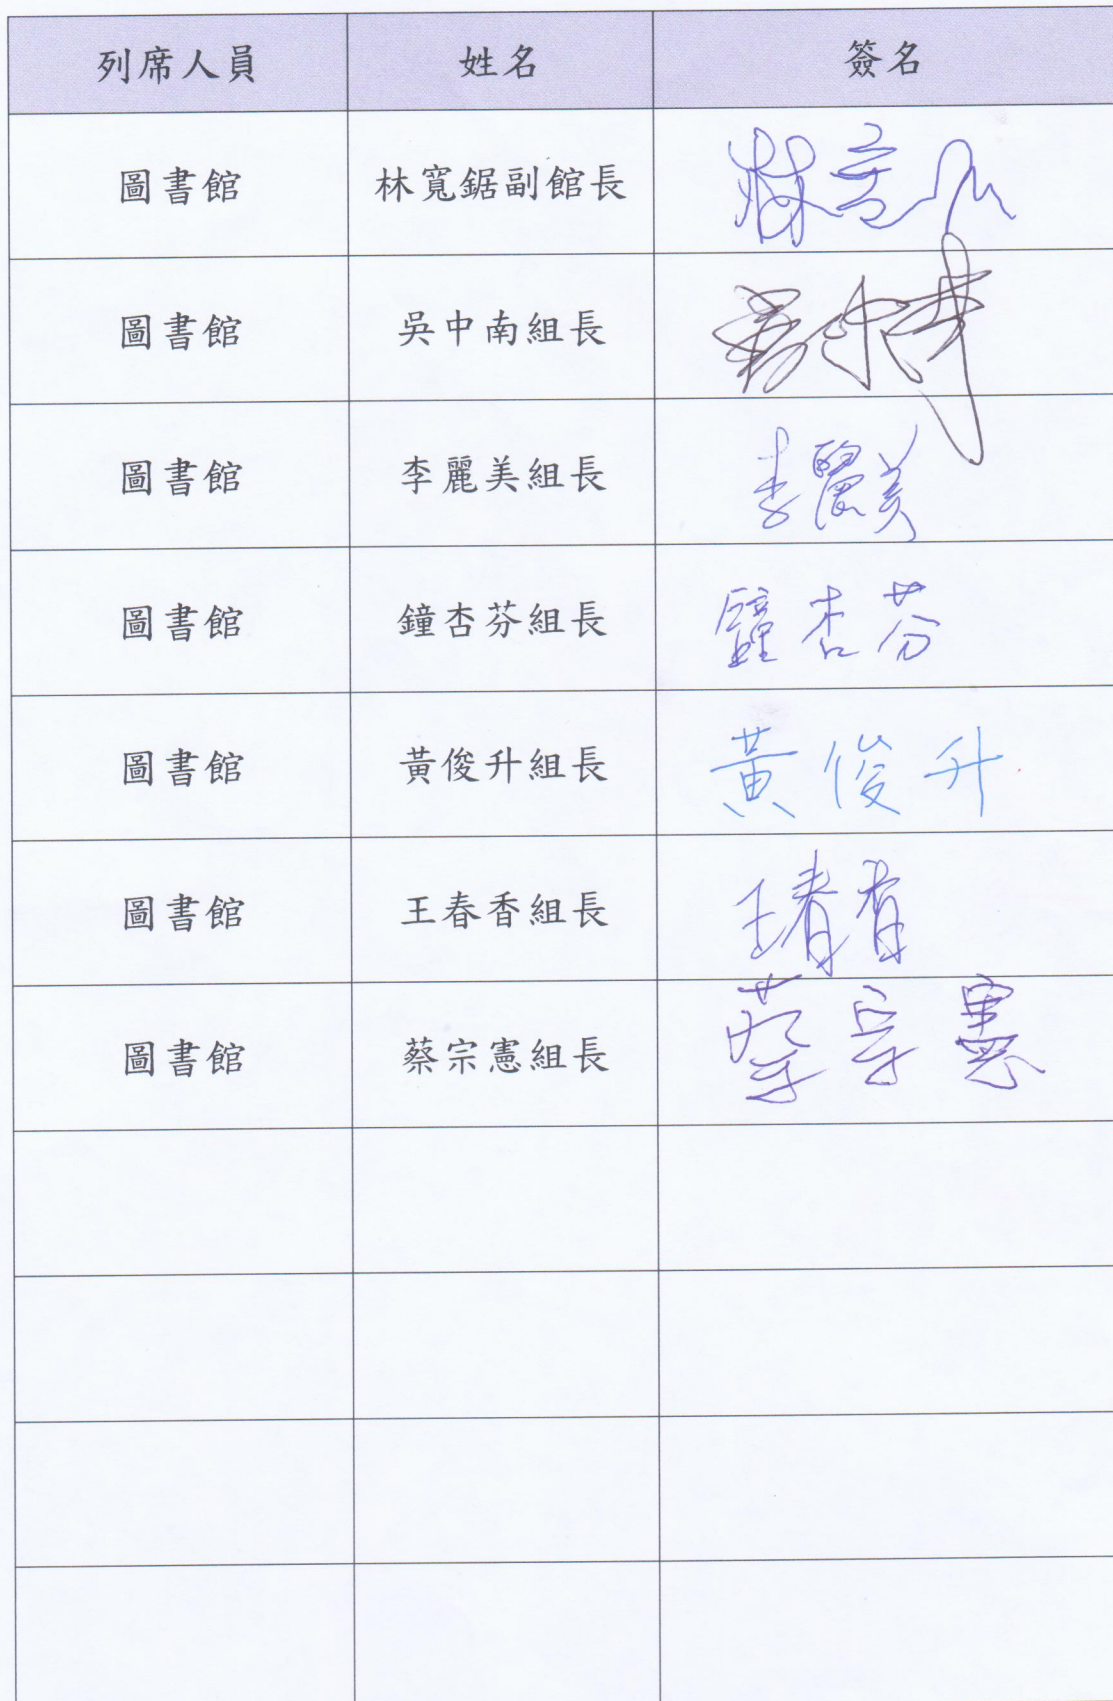 列席人員 姓名 簽名
圖書館 林寬鋸副館長
圖書館 吳中南組長
圖書館 李麗美組長 李麗美
圖書館 鐘杏芬組長 鐘杏芬
圖書館 黃俊升組長 黃俊升
圖書館 王春香組長 王春香
圖書館 蔡宗憲組長 蔡宗憲